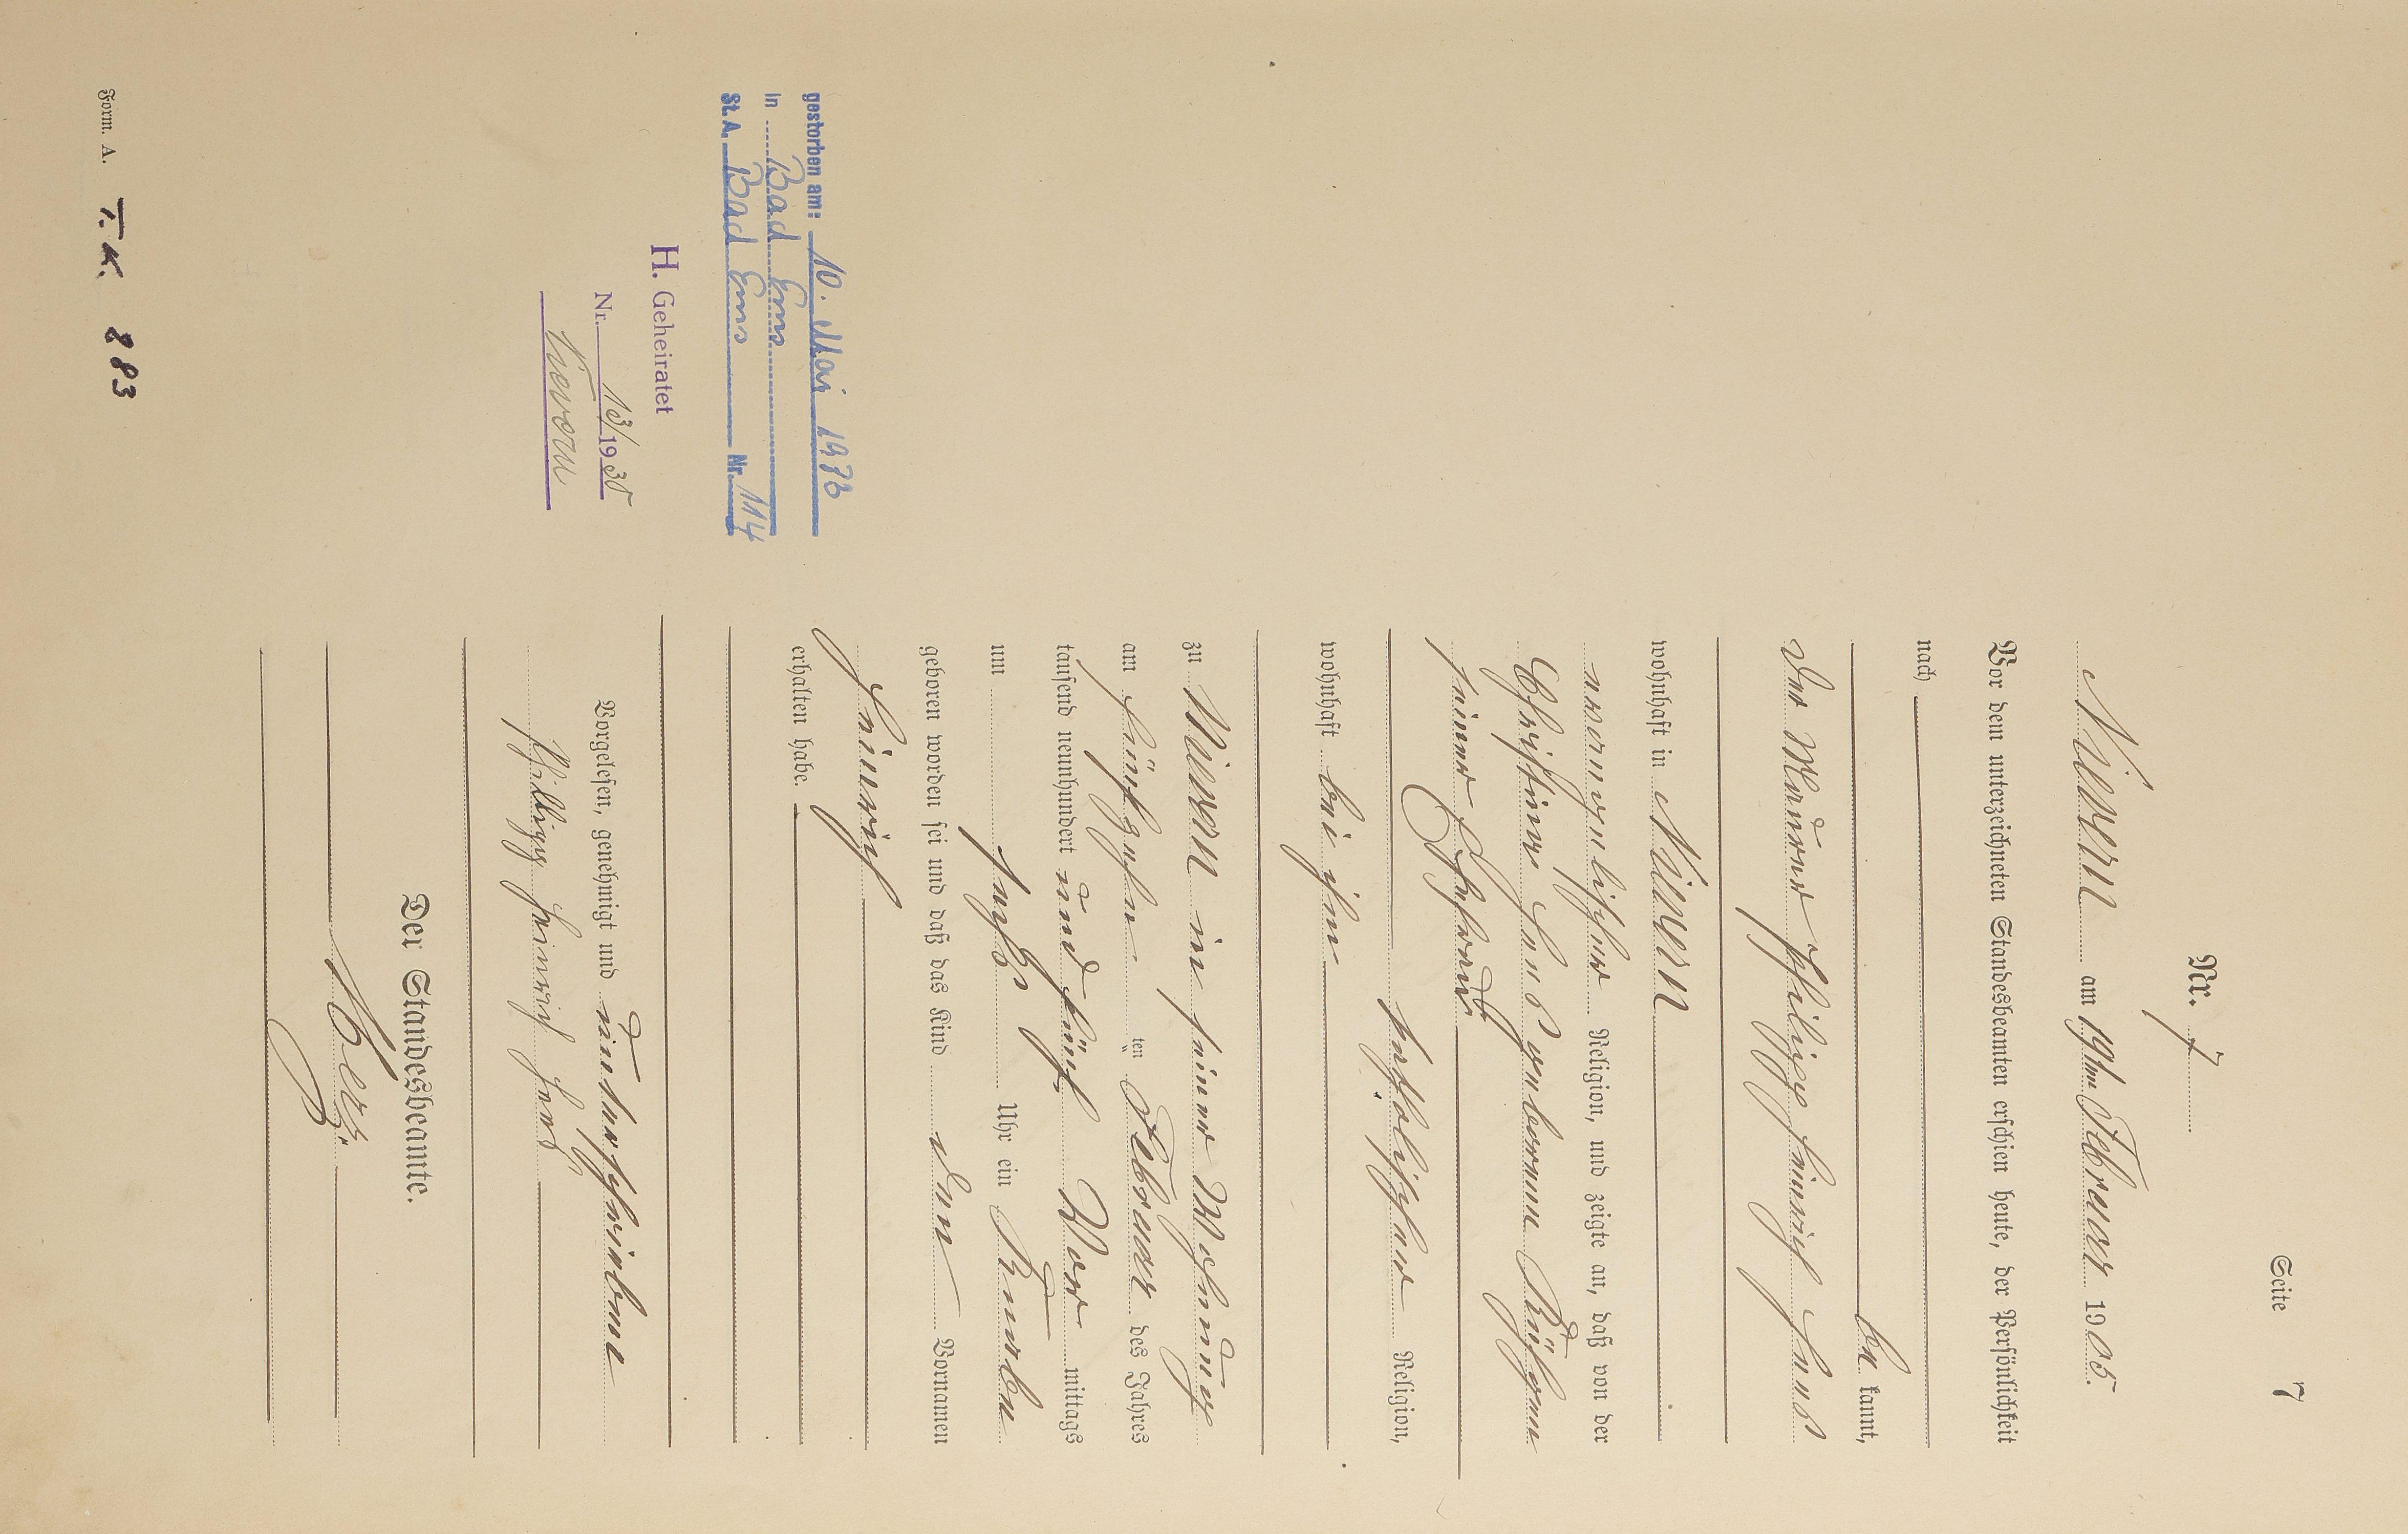 Seite 7
Nr. 7
Nievern am 19ten Februar 1905.
Vor dem unterzeichneten Standesbeamten erschien heute, der Persönlichkeit
nach
be kannt,
der Maurer Philipp Heinrich
wohnhaft in Nievern
evangelischer Religion, und zeigte an, daß von der
Christine geborenen
seiner Ehefrau
katholischer Religion,
wohnhaft bei ihm
zu Nievern in seiner Wohnung
am fünfzehn ten Februar des Jahres
tausend neunhundert und fünf Vor mittags
um sechs Uhr ein Knabe
geboren worden sei und daß das Kind den Vornamen
Heinrich
erhalten habe.
Vorgelesen, genehmigt und unterschrieben
Philipp Heinrich
Der Standesbeamte.
gestorben am: 10. Mai 1973
in Bad Ems
St. A. Bad Ems Nr. 114
H. Geheiratet
Nr. 13/1935
Nievern
Form. A. T. K. 883